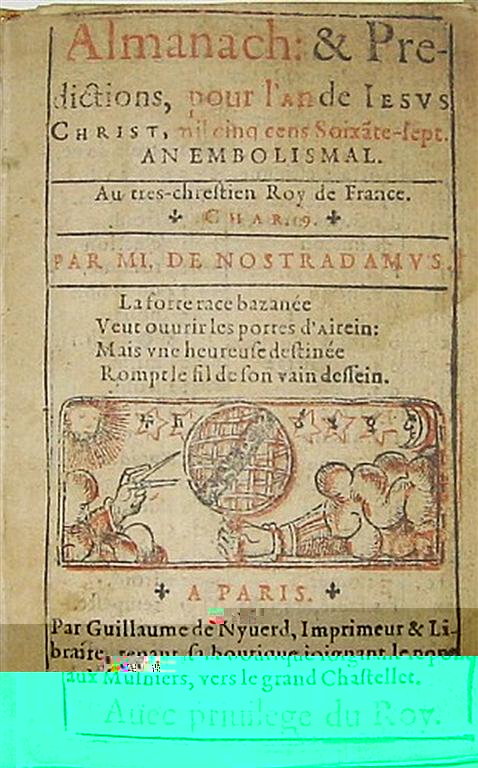 Almanach: & Pre-
dictions, pour l'an de IESVS
CHRIST, mil cinq cens Soixãte-sept.
AN EMBOLISMAL.
Au tres-chrestien Roy de France.
CHAR. 9.
PAR MI. DE NOSTRADAMVS.
La forte race bazanée
Veut ouurir les portes d'Airein:
Mais vne heureuse destinée
Rompt le fil de son vain dessein.
A PARIS.
Par Guillaume de Nyuerd, Imprimeur & Li-
braire, tenant sa boutique ioignant le pont
aux Musniers, vers le grand Chastellet.
Auec priuilege du Roy.